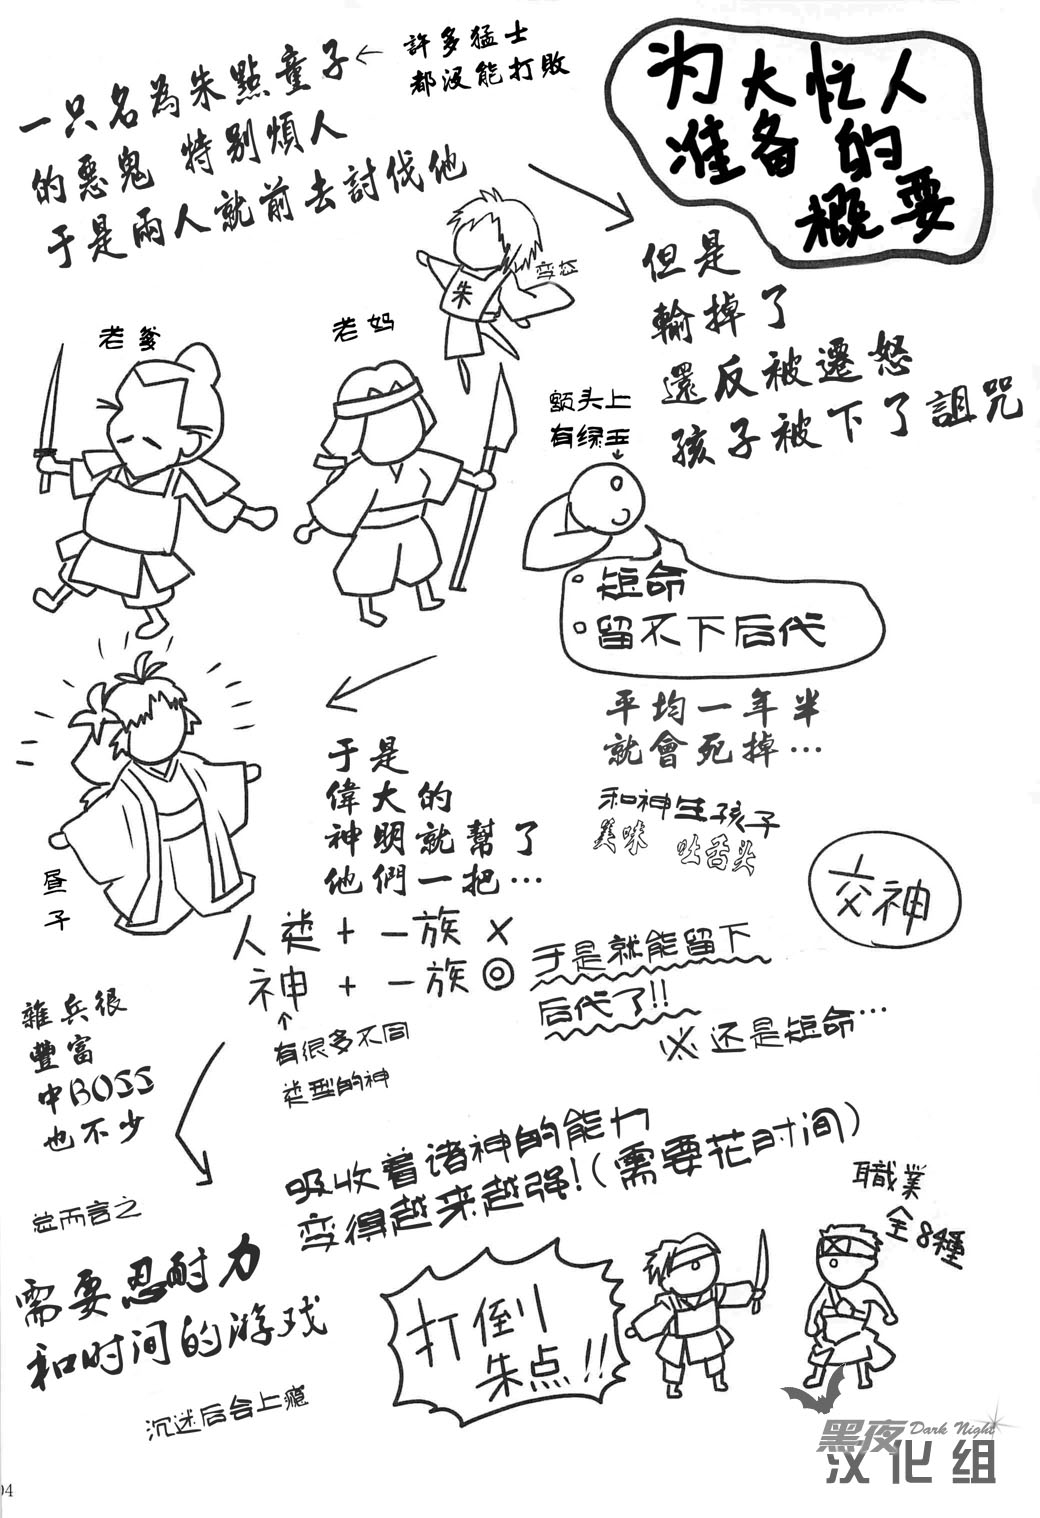 为大忙人
准备的
概要
許多猛士
都没能打敗
一只名為朱點童子
的惡鬼 特别煩人
于是兩人就前去討伐他
朱
老爹
老妈
但是
輸掉了
還反被遷怒
孩子被下了詛咒
额头上
有绿玉
短命
留不下后代
平均一年半
就會死掉…
和神生孩子
美味 吐舌头
交神
于是
偉大的
神明就幫了
他們一把…
昼子
人类+一族×
神+一族◎
有很多不同
类型的神
于是就能留下
后代了!!
※还是短命…
雜兵很
豐富
中BOSS
也不少
吸收着诸神的能力
变得越来越强!(需要花时间)
总而言之
需要忍耐力
和时间的游戏
沉迷后会上瘾
打倒
朱点!!
職業
全8種
黑夜 Dark Night
汉化组
04